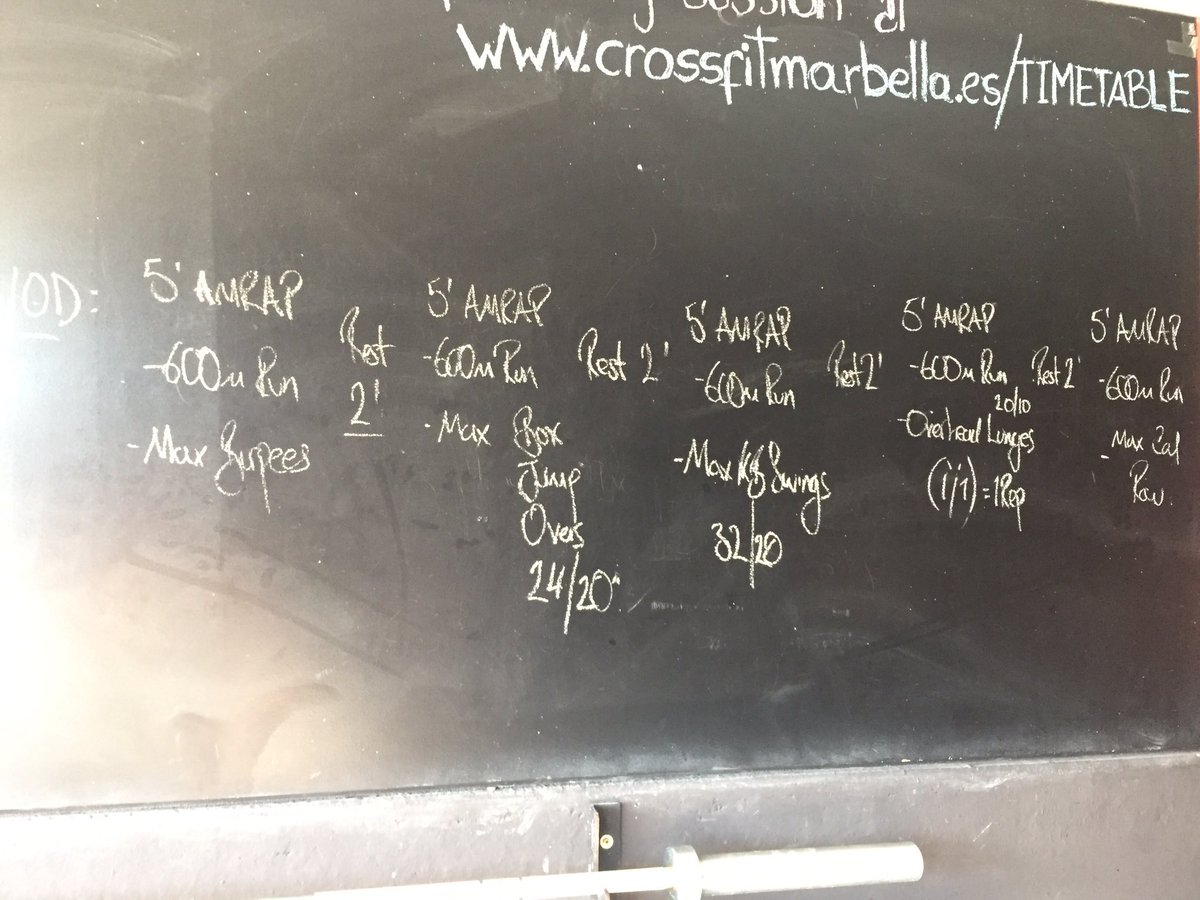 session at
www.crossfitmarbella.es/TIMETABLE
WOD:
5' AMRAP
-600m Run
-Max Burpees
Rest
2'
5' AMRAP
-600m Run
-Max Box
Jump
Overs
24/20"
Rest 2'
5' AMRAP
-600m Run
-Max KB Swings
32/20
Rest 2'
5' AMRAP
-600m Run
20/10
-Overhead Lunges
(1/1) = 1Rep
Rest 2'
5' AMRAP
-600m Run
-Max Cal
Row.